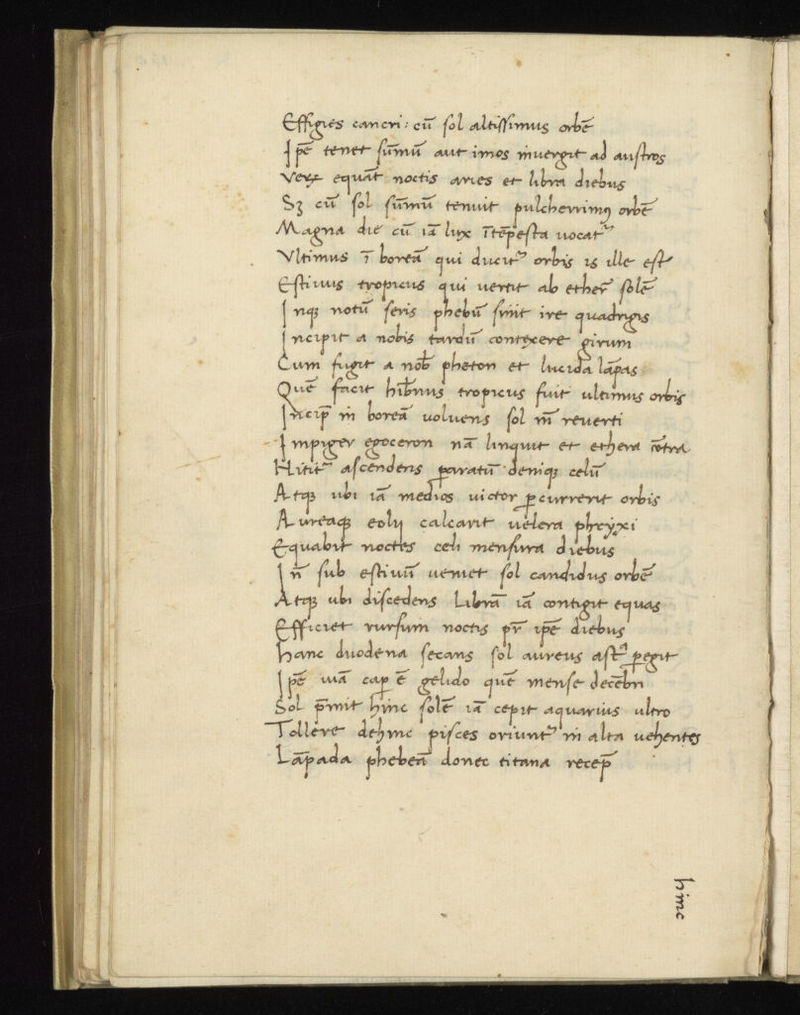 Effigies cancri: cū sol altissimus orbē
Ipē tenet sūmū aut imos inuergit ad austros
equāt noctis aries et libra diebus
Sꝫ cū sol sūmū tenuit pulcherrimꝰ orbē
Magna die cū iā lux ītēpesta uocat᷑
Vltimus ī boreā qui ducit᷑ orbis is ille est
Estiuus tropicus qui uertit ab ether̄ solē
Inqꝫ notū seris phebū sinit ire quadrigis
Incipit a nobis tardū contexere girum
Cum fugit a nob̄ pheton et lucida lāpas
Quē facit hib̄nus tropicus fuit ultimus orbis
Incip̄ in boreā uoluens sol m̄ reuerti
Impiger egoceron nā linquit et ethera cōtra
Hitit᷑ ascendens ꝑaratū deniqꝫ celū
Atqꝫ ubi iā medios uictor ꝑcurrerit orbis
Aureaqꝫ eolij calcarit uelera phryxi
Equabit noctes celi mensura diebus
In̄ sub estiuū ueniet sol candidus orbē
Atqꝫ ubi discedens Librā iā contigit equas
Efficiet rursum noctis pr̄ ipē diebus
Hanc duodena secans sol aureus ast᷑ ꝑegit
Ipē uiā cap̄ ē gelido quē mense decēbri
Sol p̄mit hinc solē iā cepit aquarius ultro
Tollere dehinc pisces oriunt᷑ in alta uehentes
Lāpada phebeā donec titana recep̄
hinc